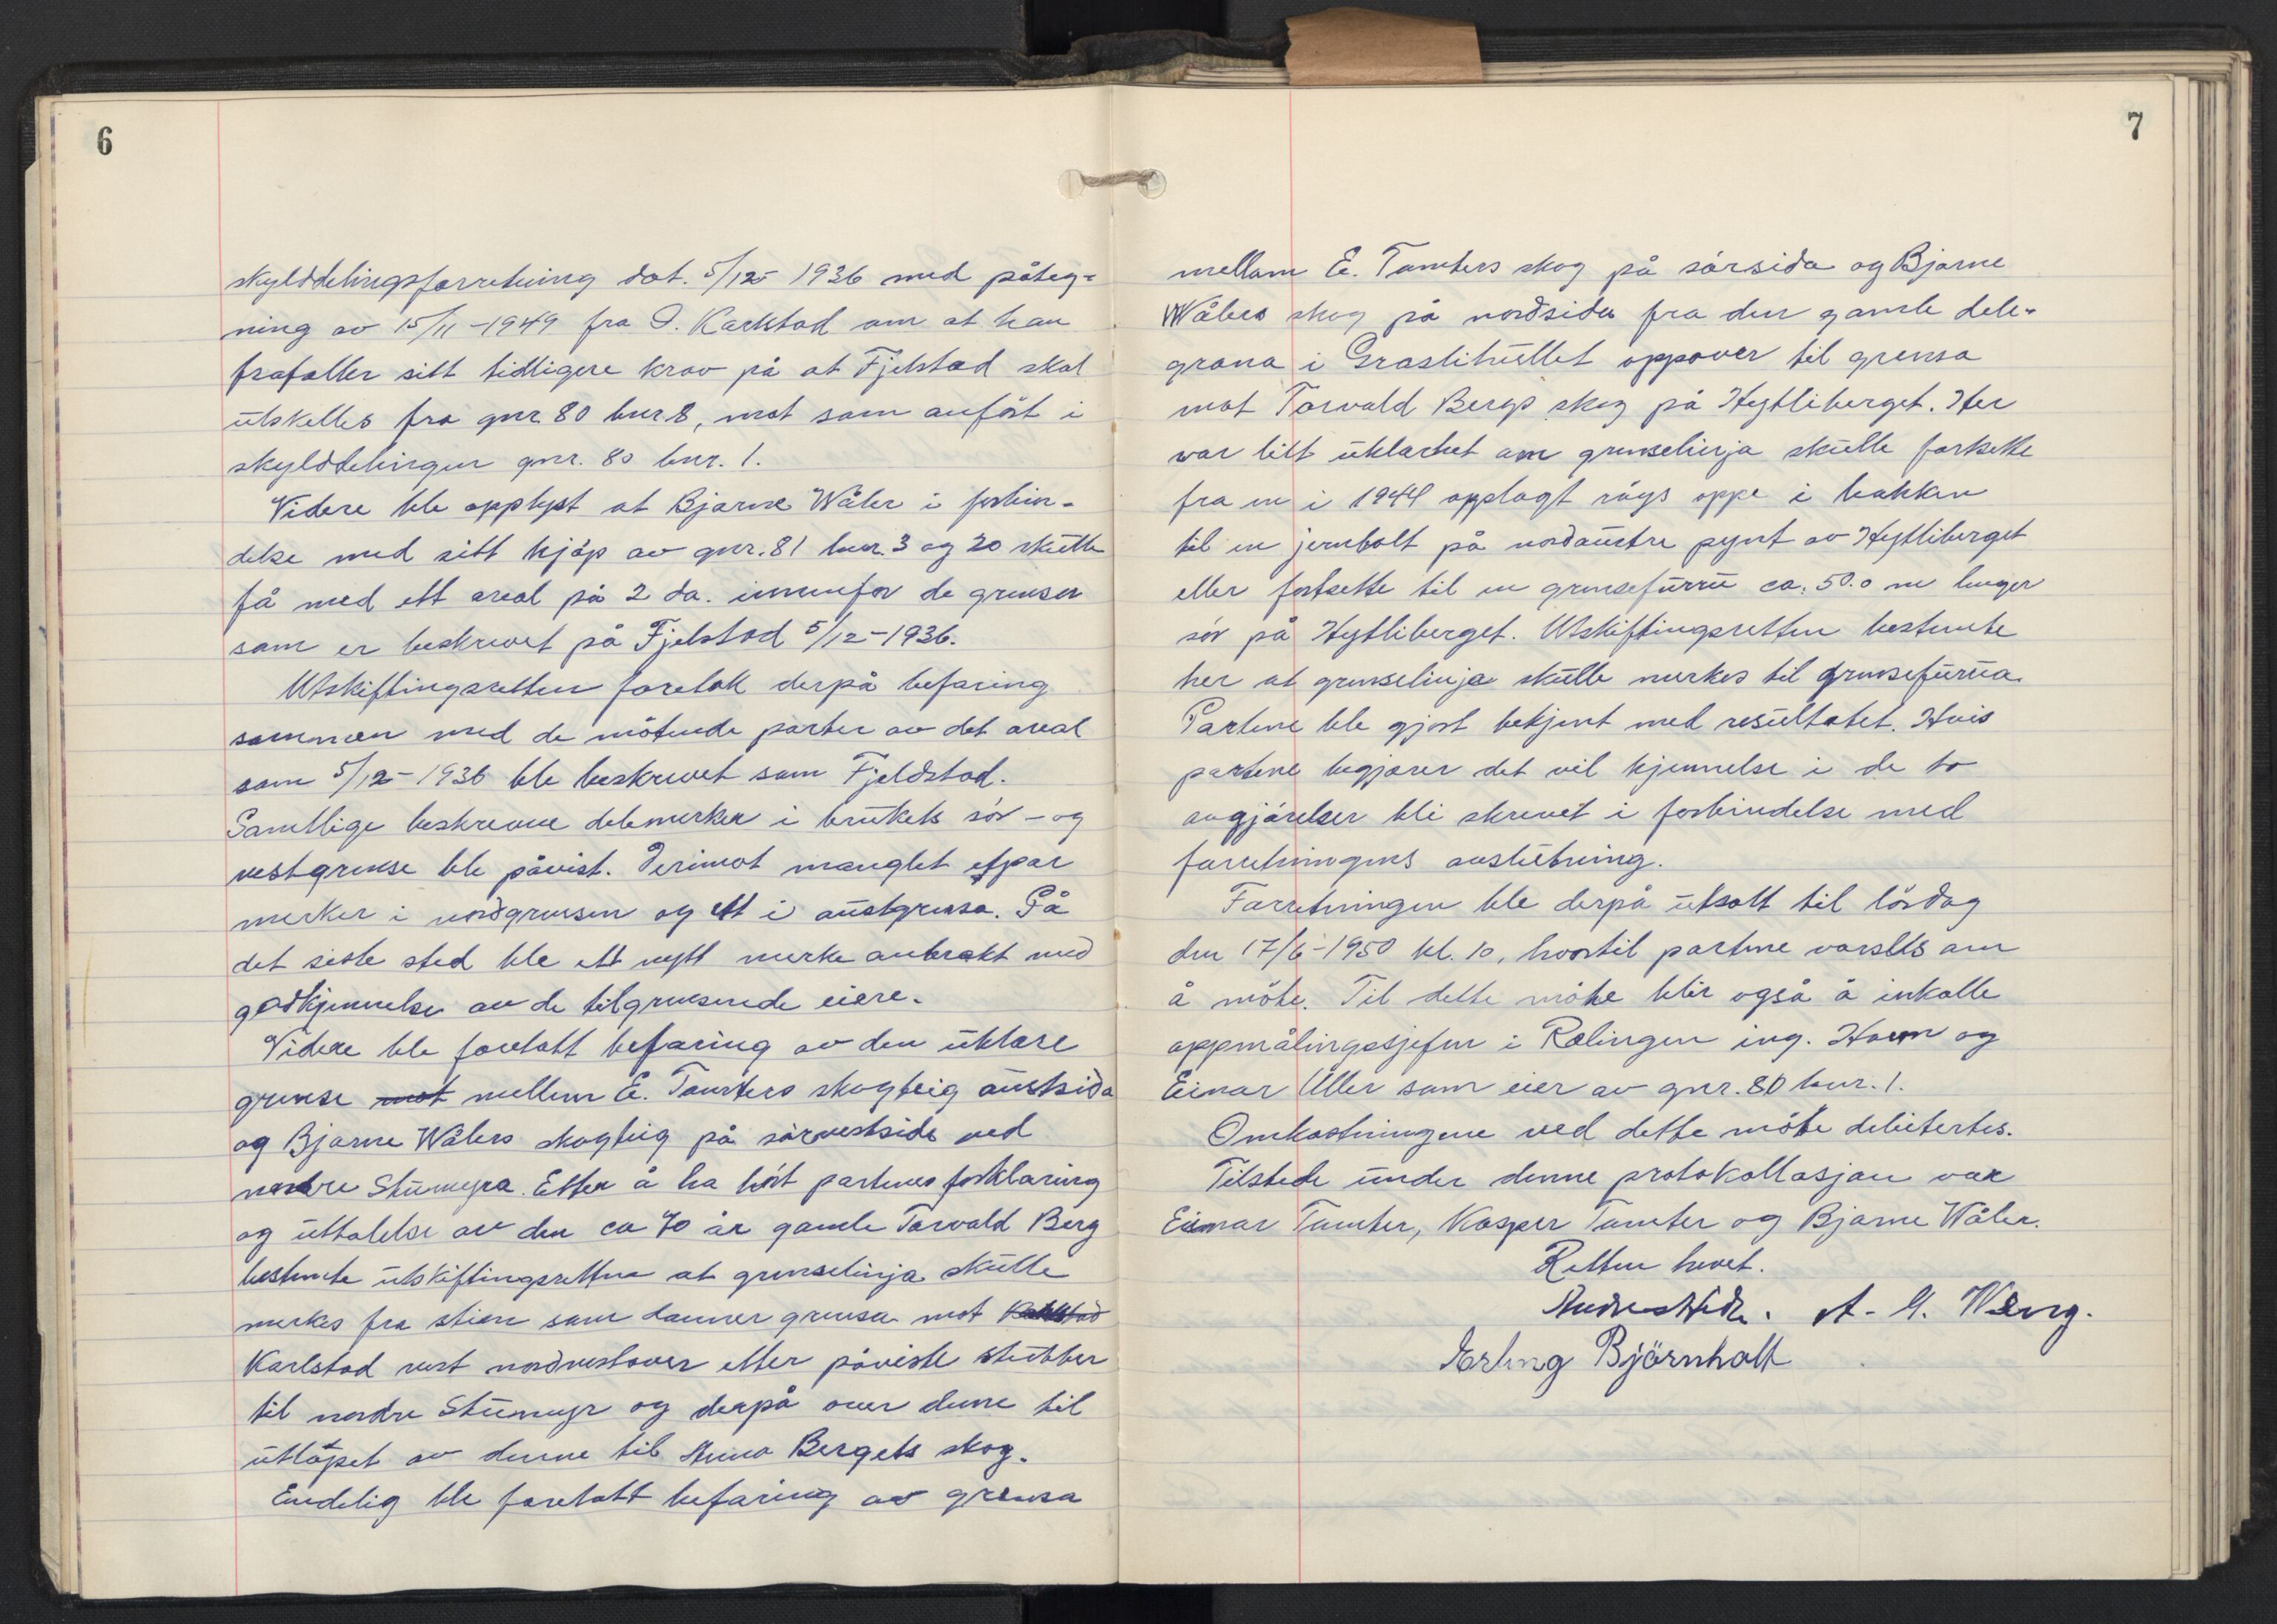 6
skylddelingsforretning dat. 5/12-1936 med påteg-
ning av 15/11-1949 fra O. Karlstad om at han
frafaller sitt tidligere krav på at Fjelstad skal
utskilles fra gnr. 80 bnr. 8, mot som anført i
skylddelingen gnr. 80 bnr. 1.
Videre ble opplyst at Bjarne Wåler i forbin-
delse med sitt kjøp av gnr. 81 bnr. 3 og 20 skulle
få med ett areal på 2 da. innenfor de grenser
som er beskrevet på Fjelstad 5/12-1936.
Utskiftingsretten foretok derpå befaring
sammen med de møtende parter av det areal
som 5/12-1936 ble beskrevet som Fjeldstad.
Samtlige beskrevne delemerker i brukets sør- og
vestgrense ble påvist. Derimot manglet et par
merker i nordgrensen og ett i austgrensa. På
det siste sted ble ett nytt merke anbrakt med
godkjennelse av de tilgrensende eiere.
Videre ble foretatt befaring av den uklare
grense mot mellem E. Tomters skogteig austsida
og Bjarne Wålers skogteig på sørvestside ved
nordre Stumyra. Etter å ha hørt partenes forklaring
og uttalelse av den ca 70 år gamle Torvald Berg
bestemte utskiftingsretten at grenselinja skulle
merkes fra stien som danner grensa mot Karlstad
Karlstad rett nordvestover etter påviste stubber
til nordre Stumyr og derpå over denne til
utløpet av denne til Anna Bergets skog.
Endelig ble foretatt befaring av grensa
7
mellom E. Tomters skog på sørsida og Bjarne
Wålers skog på nordsida fra den gamle dele-
grana i Graslihullet oppover til grensa
mot Torvald Bergs skog på Hytliberget. Her
var litt uklarhet om grenselinja skulle fortsette
fra en i 1944 opplagt røys oppe i bakken
til en jernbolt på nordaustre pynt av Hytliberget
eller fortsette til en grensefurru ca. 50.0 m lenger
sør på Hytliberget. Utskiftingsretten bestemte
her at grenselinja skulle merkes til grensefurua.
Partene ble gjort bekjent med resultatet. Hvis
partene begjærer det vil kjennelse i de to
avgjørelser bli skrevet i forbindelse med
forretningens avslutning.
Forretningen ble derpå utsatt til lørdag
den 17/6-1950 kl. 10, hvortil partene varsles om
å møte. Til dette møte blir også å inkalle
oppmålingssjefen i Rælingen ing. Horn og
Einar Uller som eier av gnr. 80 bnr. 1.
Omkostningene ved dette møte debitertes.
Tilstede under denne protokollasjon var
Einar Tomter, Kasper Tomter og Bjarne Wåler.
Retten hevet.
A. G. Weng.
Erling Bjørnholt